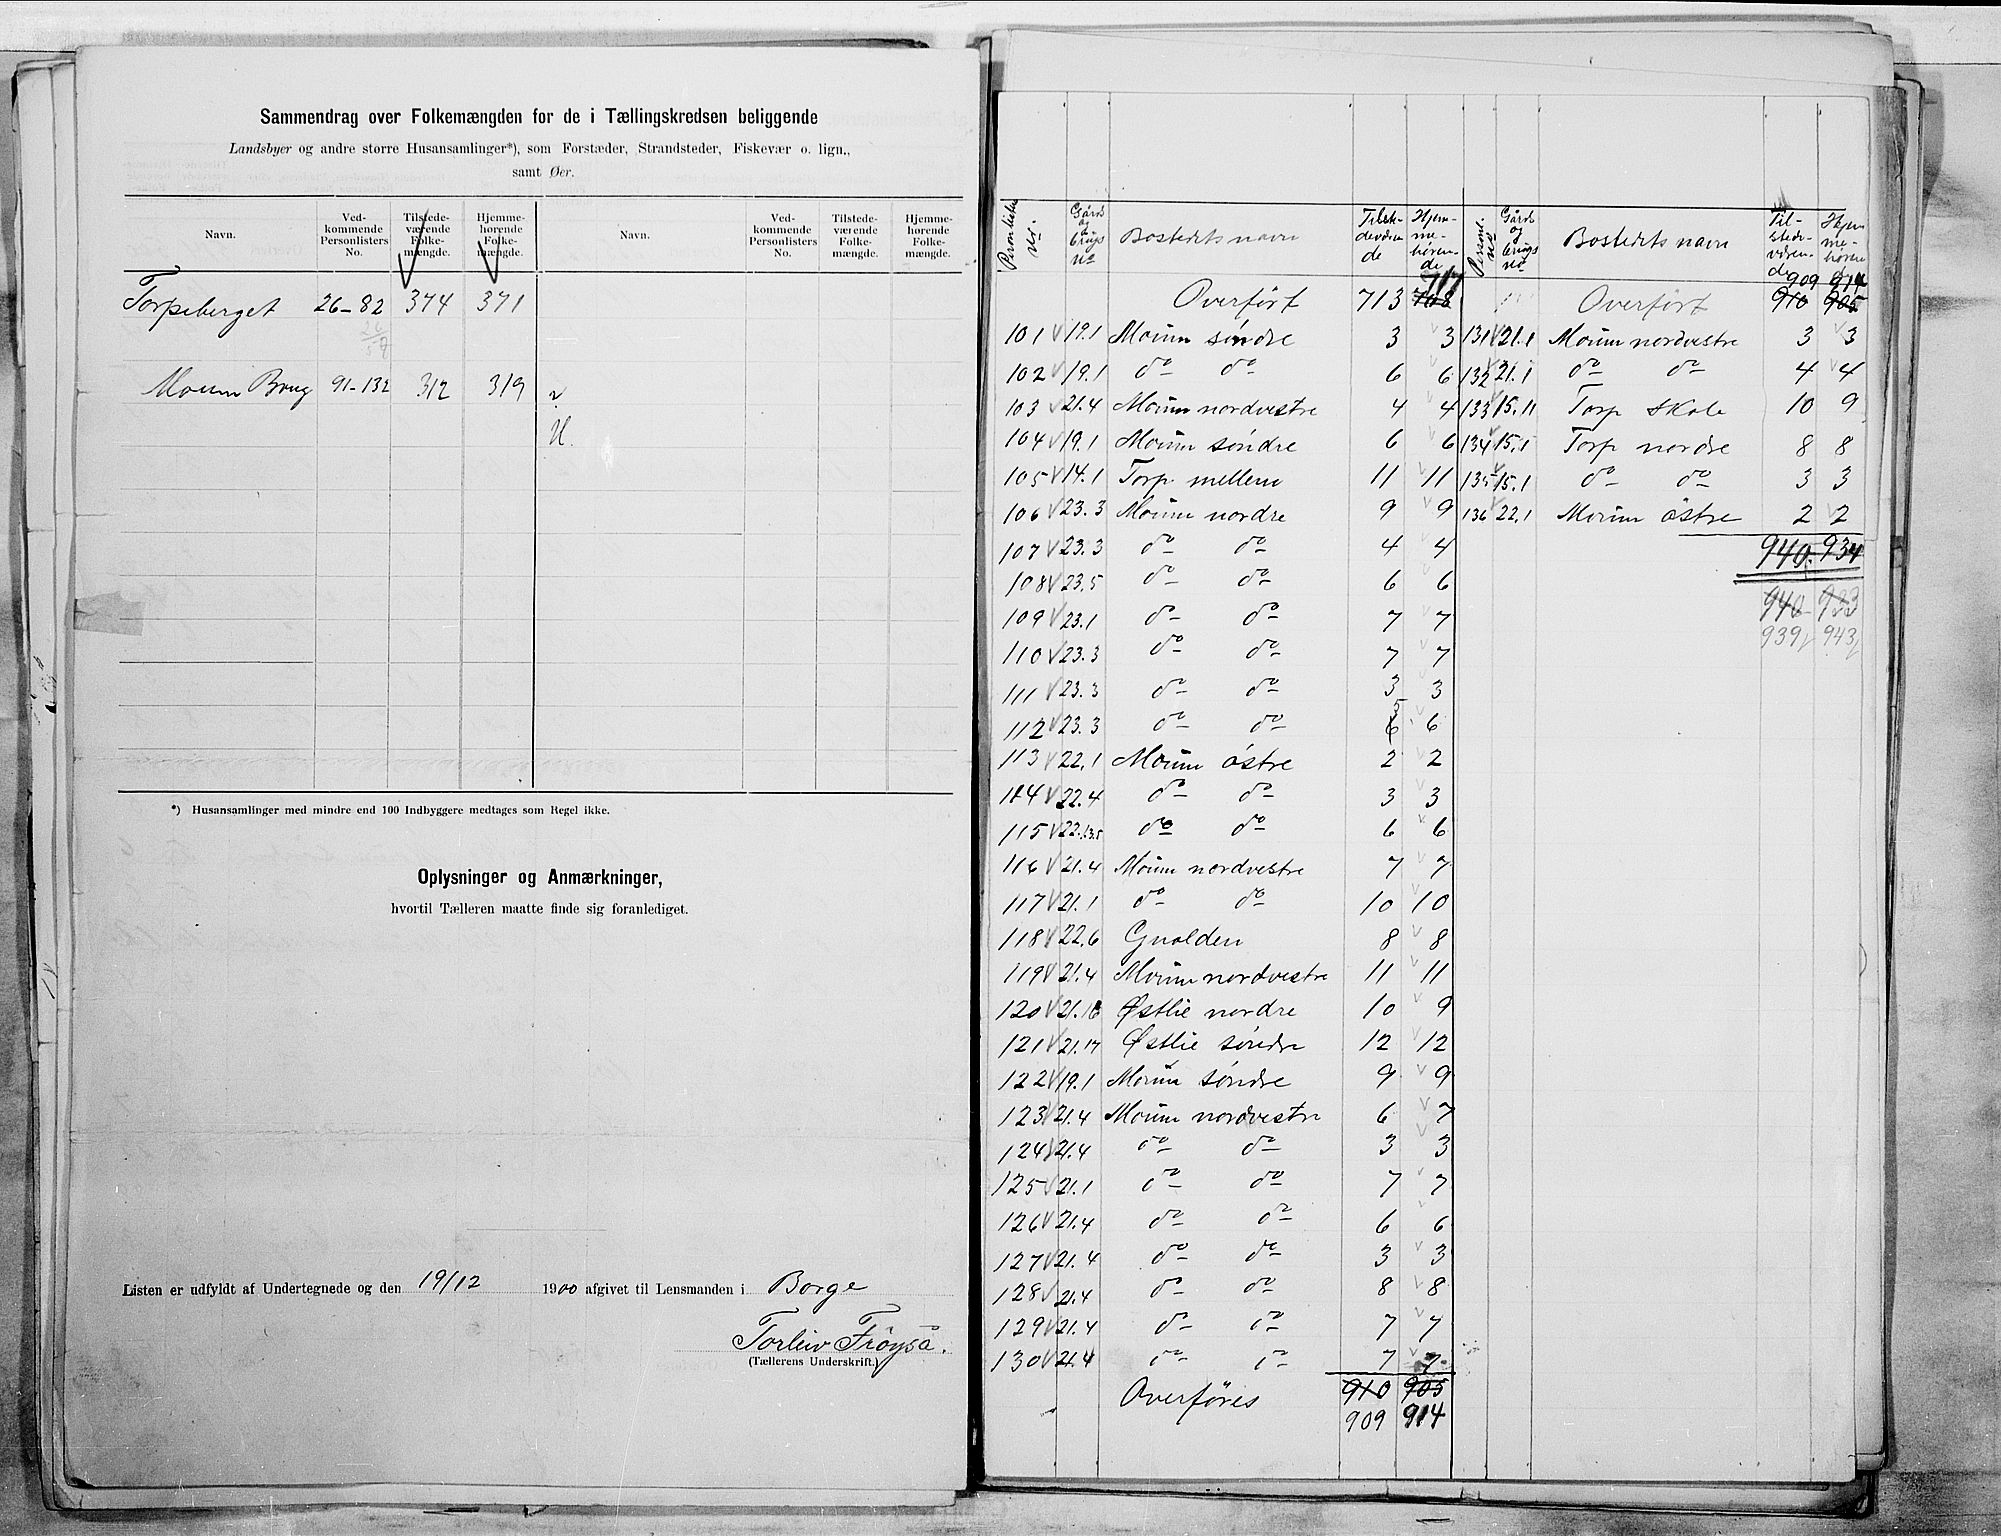 Sammendrag over Folkemængden for de i Tællingskredsen beliggende
Landsbyer og andre større Husansamlinger*), som Forstæder, Strandsteder, Fiskevær o. lign.,
samt Øer.
Navn. Ved-kommende Personlisters No. Tilstede-værende Folke-mængde. Hjemme-hørende Folke-mængde. Navn. Ved-kommende Personlisters No. Tilstede-værende Folke-mængde. Hjemme-hørende Folke-mængde.
Torpeberget 26-82 374 371
Moum Brug 91-132 312 319
*) Husansamlinger med mindre end 100 Indbyggere medtages som Regel ikke.
Oplysninger og Anmærkninger,
hvortil Tælleren maatte finde sig foranlediget.
Listen er udfyldt af Undertegnede og den 19/12 1900 afgivet til Lensmanden i Borge
Torleiv Frøyså.
(Tællerens Underskrift.)
Personliste nr. Gårds og brugs nº Bostedets navn Tilstedeværende Hjemmehørende
Overført 713 708 717
101 19.1 Moum søndre 3 3
102 19.1 do do 6 6
103 21.4 Moum nordvestre 4 4
104 19.1 Moum søndre 6 6
105 14.1 Torp mellem 11 11
106 23.3 Moum nordre 9 9
107 23.3 do do 4 4
108 23.5 do do 6 6
109 23.1 do do 7 7
110 23.3 do do 7 7
111 23.3 do do 3 3
112 23.3 do do 5 6
113 22.1 Moum østre 2 2
114 22.4 do do 3 3
115 22. do do 6 6
116 21.4 Moum nordvestre 7 7
117 21.1 do do 10 10
118 22.6 Gnolden 8 8
119 21.4 Moum nordvestre 11 11
120 21.16 Østlie nordre 10 9
121 21.17 Østlie søndre 12 12
122 19.1 Moum søndre 9 9
123 21.4 Moum nordvestre 6 7
124 21.4 do do 3 3
125 21.1 do do 7 7
126 21.4 do do 6 6
127 21.4 do do 3 3
128 21.4 do do 8 8
129 21.4 do do 7 7
130 21.4 do do 7 7
910 905
Overføres
909 914
Personl. nº Gårds og brugs nº Bostedets navn Tilstedeværende Hjemmehørende
909 914
Overført 910 905
131 21.1 Moum nordvestre 3 3
132 21.1 do do 4 4
133 15.11 Torp skole 10 9
134 15.1 Torp nordre 8 8
135 15.1 do do 3 3
136 22.1 Moum østre 2 2
940 934
940 933
939 943